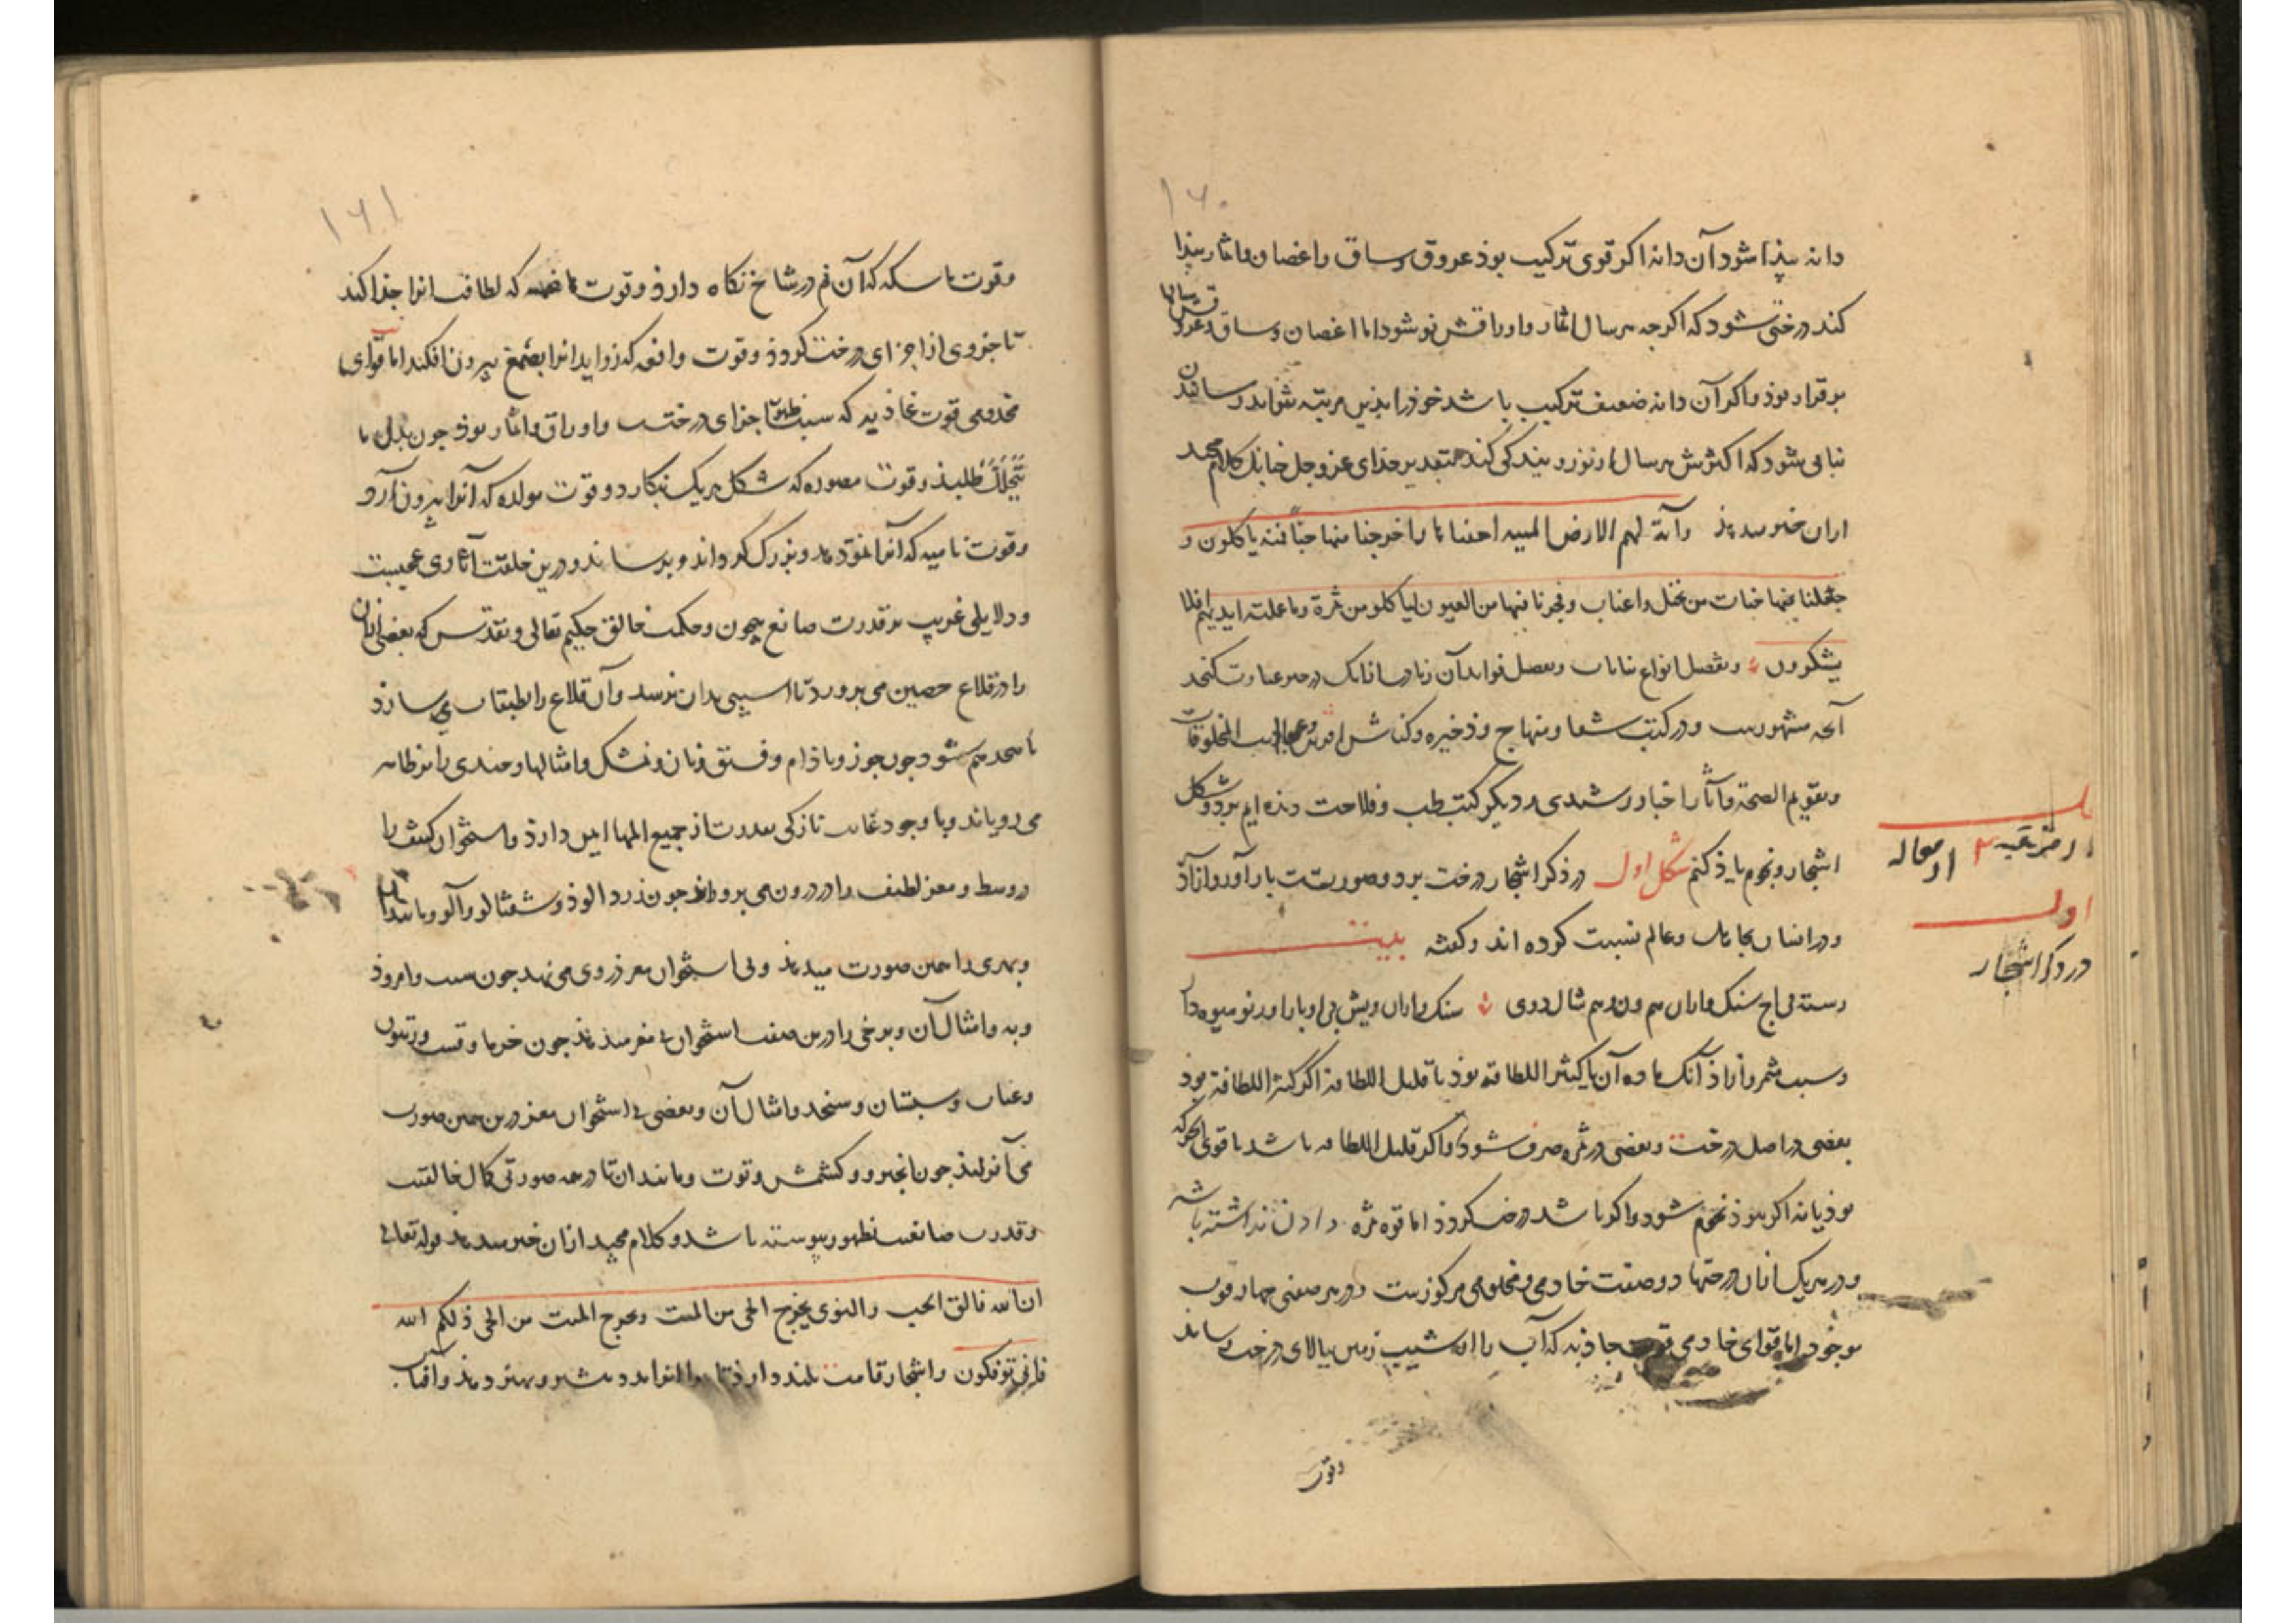 ۱۶۰
دانه پیذا شود آن دانه اکر قوی ترکیب بوذ عروق و ساق و اغصان و اثمار پیذا
کند درختی شود که اکرجه هر سال اثمار و اوراقش نو شود اما اغصان و ساق و عروقش سالها
برقرار بوذ و اکر آن دانه ضعیف ترکیب باشد خوذ را بذین مرتبه نتواند رسانیدن
نباتی شود که اکثرش هر سال از نو روییدکی کند بتقدیر خدای عز و جل جنانک کلام مجید
ازان خبر میدهذ وآیة لهم الارض المیته احییناها و اخرجنا منها حبا فمنه یاکلون و
جعلنا فیها جنات من نخیل و اعناب و فجرنا فیها من العیون لیاکلو من ثمره و ما عملته ایدیهم افلا
یشکرون و تفصیل انواع نباتات و تفصیل فواید آن زیادت از آنک در حیز عبارت کنجد
آنچه مشهورست و در کتب شفا و منهاج و ذخیره و کناش و عجایب المخلوقات
و تقویم الصحة و آثار و اخبار رشیدی و دیکر کتب طب و فلاحت دیذه ایم بر دو شکل
اشجار و نجوم یاذ کنیم شکل اول در ذکر اشجار درخت بر دو صورتست بارآور و آزاد
و در انسان بجاهل و عالم نسبت کرده اند و کفته بیت
وسبب مثمر و آزاذ آنک ماده آن یا کثیر اللطافه بوذ یا قلیل اللطافة اکر کثیر اللطافة بوذ
بعضی در اصل درخت و بعضی در ثمره صرف شود و اکر قلیل اللطافه باشد یا قوی الحرکه
بوذ یا نه اکر نبوذ نجوم شود و اکر باشد درخت کردذ اما قوه ثمره دادن نداشته باشد
و در هر یک ازان درختها دو صفت خادمی و مخدومی مرکوزست و در هر صفتی جهار قوت
موجود اما قوای خادمی قوت جاذبه که آب را از شیب زمین ببالای درخت رساند
وقوت
از مرتبه ۲ از مقاله
اول
در ذکر اشجار
۱۶۱
وقوت ماسکه که آن نم در شاخ نکاه دارذ و قوت هاضمه که لطافت انرا جذا کند
تا جزوی از اجزای درخت کردد و قوت دافعه که زواید انرا بصمغ بیرون افکند اما قوای
مخدومی قوت غاذیه که سبب ظهور اجزای درخت و اوراق و اثمار بوذ جون بدل ما
یتحلل طلبد و قوت مصوره که شکل هر یک بنکارد و قوت مولده که آنرا بیرون آرد
وقوت نامیه که آنرا نمو دهد و بزرک کرداند و برساند و درین خلقت آثاری عجیبست
و دلایلی غریب بر قدرت صانع بیچون و حکمت خالق حکیم تعالی و تقدس که بعضی ازان
را در قلاع حصین می پرورد تا اسیبی بدان نرسد و آن قلاع را طبقات می سازد
تا صحد هم شود جون جوز و باذام و فستق و امثالها و جندی را بر ظاهر
می رویاند و با وجود غایت تازکی بقدرت از جمیع المها ایمن دارذ و استخوان کثیف را
در وسط و مغز لطیف را در درون می پرواند جون زردالوذ و شفتالو و آلو و مانند آن
و بهری را همین صورت میدهذ و بی استخوان مغز در وی می نهد جون سیب و امروذ
و به و امثال آن و برخی را درین صفت استخوان بی مغز میدهذ جون خرما و زیتون
و عناب و سبستان و سنجد و امثال آن و بعضی بی استخوان مغز درین همین صورت
می آفریند جون انجیر و کشمش و توت و مانند ان تا در همه صورتی کمال خالقیت
وقدرت صانعیت بظهور پیوسته باشد و کلام مجید ازان خبر میدهذ قوله تعالی
ان الله فالق الحب والنوی یخرج الحی من المیت و یخرج المیت من الحی ذلکم الله
فانی توفکون و اشجار قامت بلند دارد تا و بهتر دهذ و آفتاب